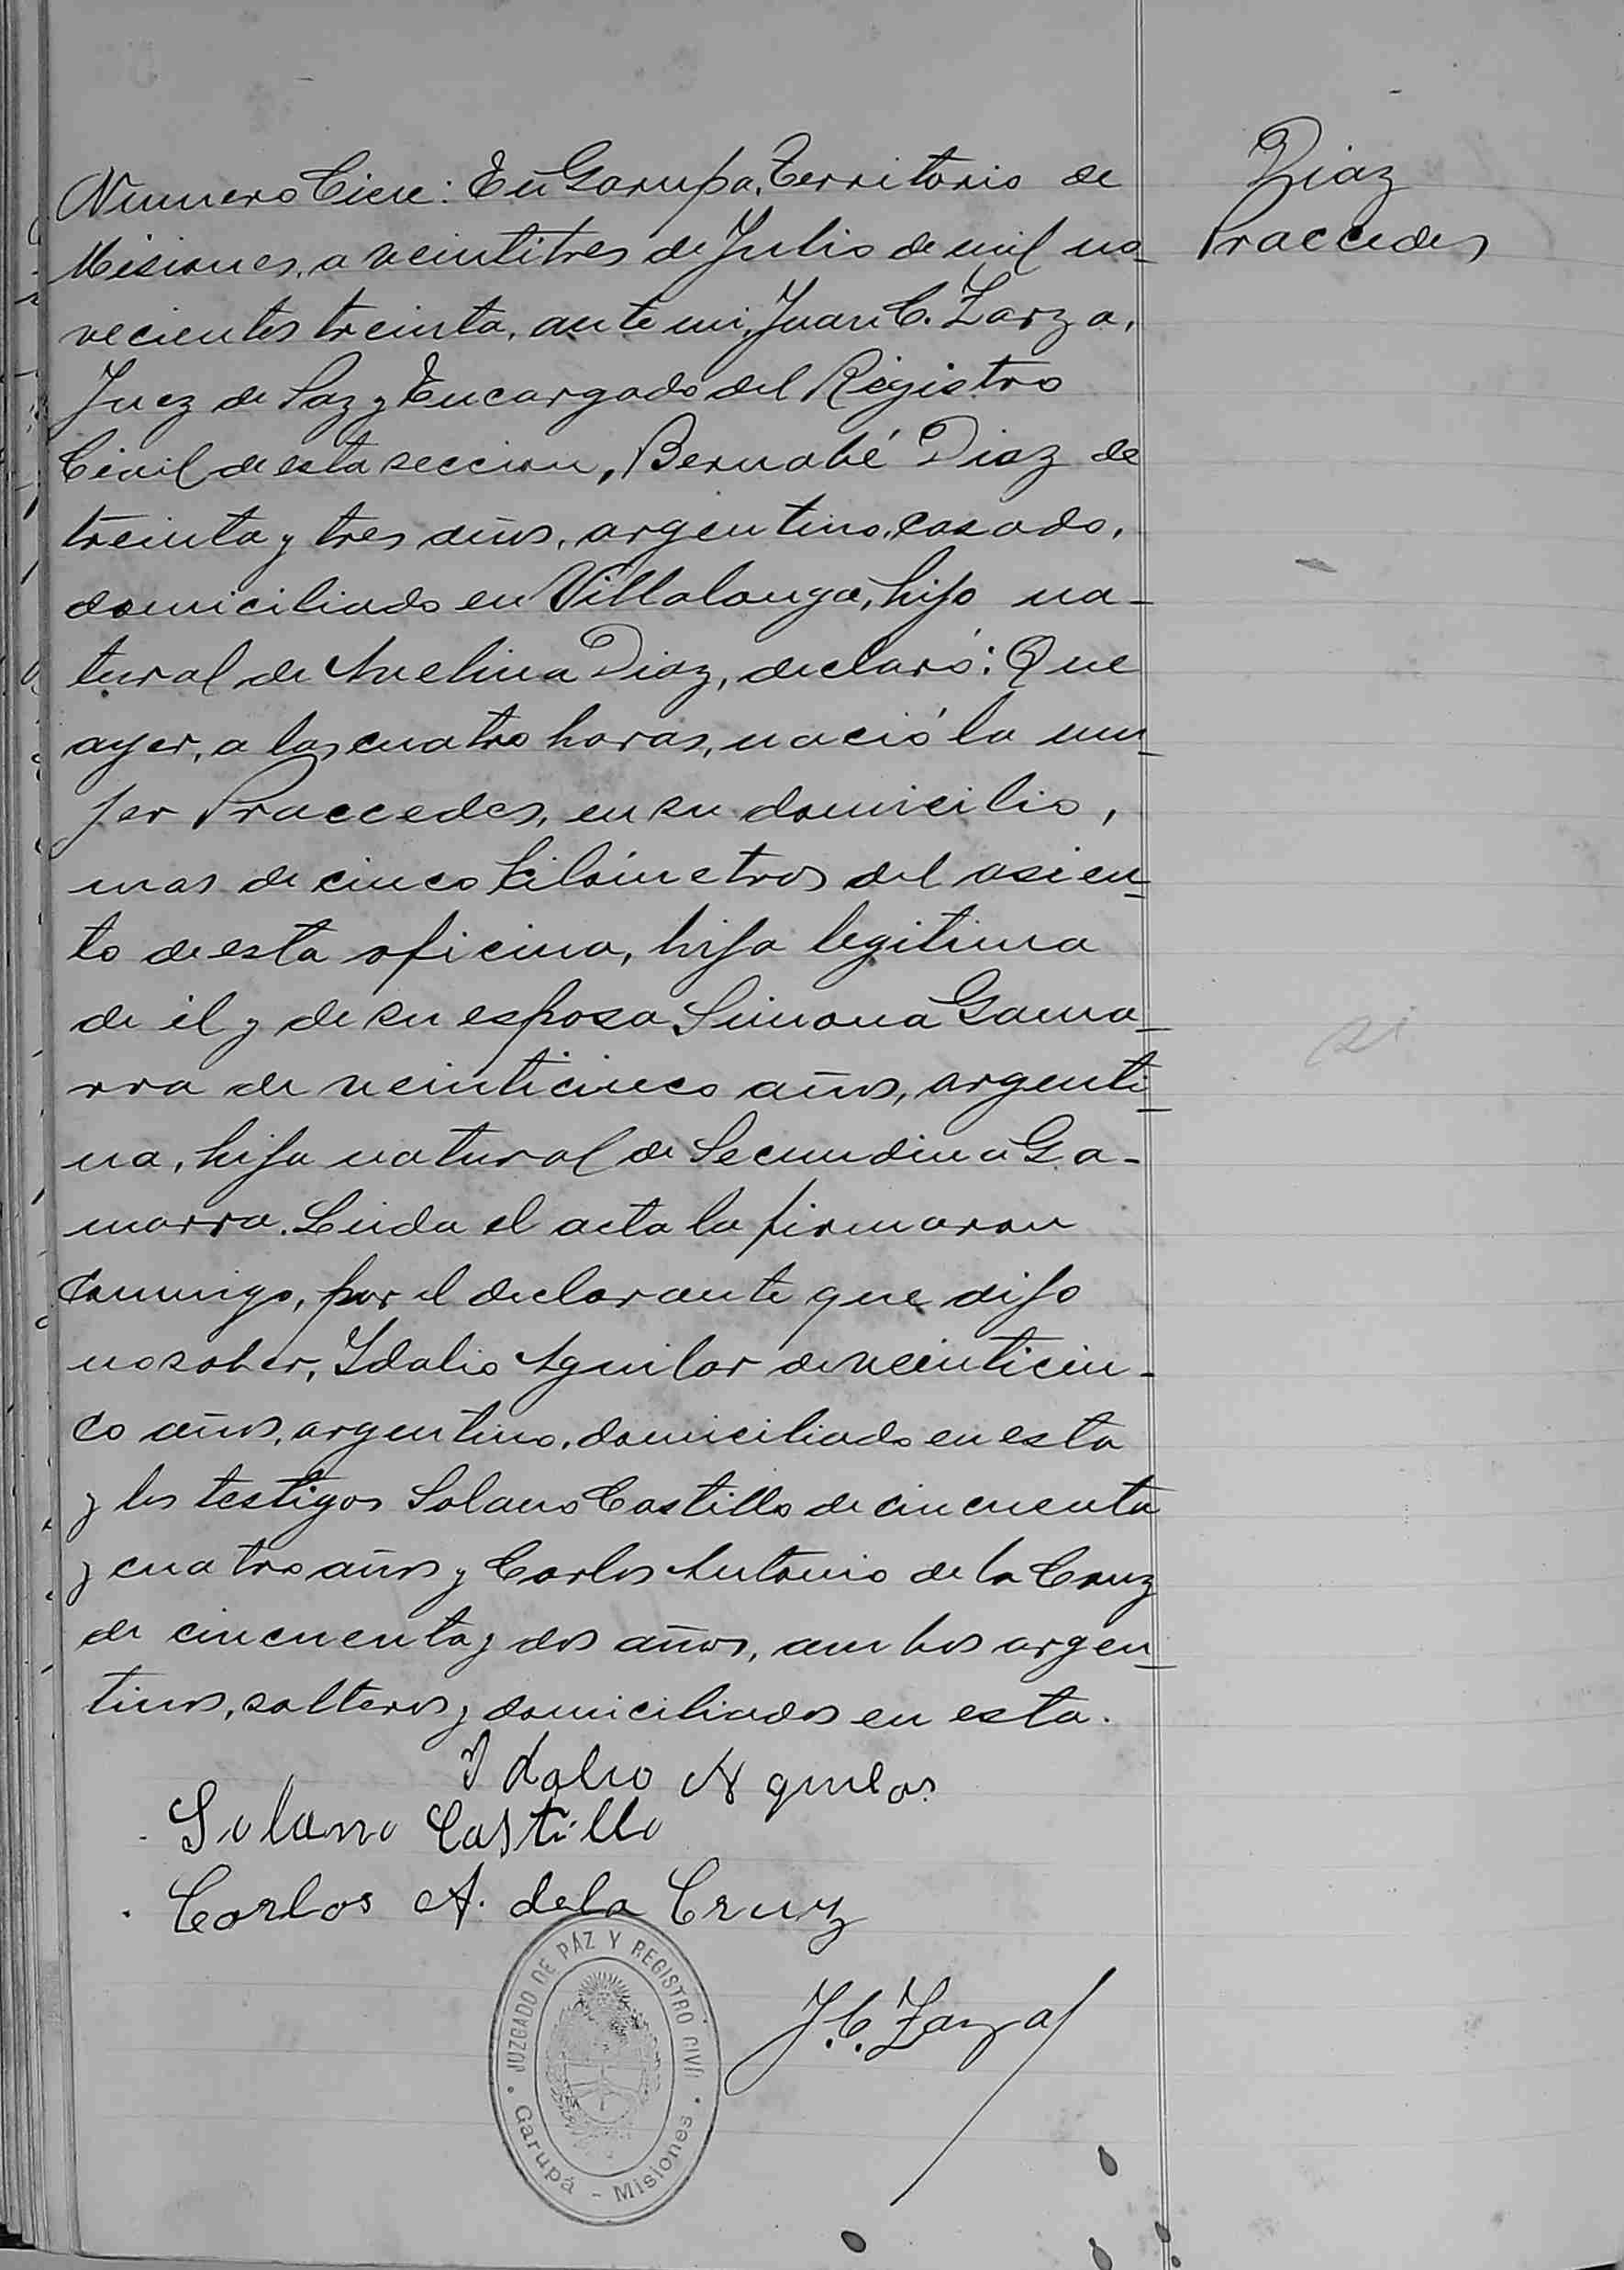 Diaz
Praccedes
Numero Cien: En Garupa, Territorio de
Misiones, a veintitres de Julio de mil no-
vecientos treinta, ante mi, Juan C. Zarza,
Juez de Paz y Encargado del Registro
Civil de esta seccion, Bernabé Diaz de
treinta y tres años, argentino, casado,
domiciliado en Villalonga, hijo na-
tural de Avelina Diaz, declaró: Que
ayer, a las cuatro horas, nació la mu-
jer Praccedes, en su domicilio,
mas de cinco kilómetros del asien-
to de esta oficina, hija legitima
de él y de su esposa Simona Gama-
rra de veinticinco años, argenti-
na, hija natural de Secundina Ga-
marra. Leida el acta la firmaron
conmigo, por el declarante que dijo
no saber, Ydalio Aguilar de veinticin-
co años, argentino, domiciliado en esta
y los testigos Solano Castillo de cincuenta
y cuatro años y Carlos Antonio de la Cruz
de cincuenta y dos años, ambos argen-
tinos, solteros y domiciliados en esta.
Ydalio Aguilar
Solano Castillo
Carlos A. de la Cruz
J. C. Zarza
JUZGADO DE PAZ Y REGISTRO CIVIL
Garupá - Misiones